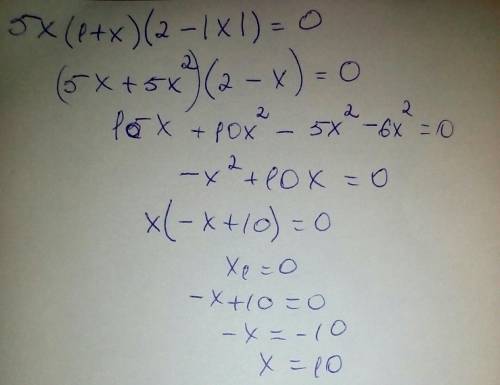 5x(1+x)(2-|x|)=0
(5x+5x²)(2-x)=0
10x+10x²-5x²-6x²=0
-x²+10x=0
x(-x+10)=0
x₁=0
-x+10=0
-x=-10
x=10